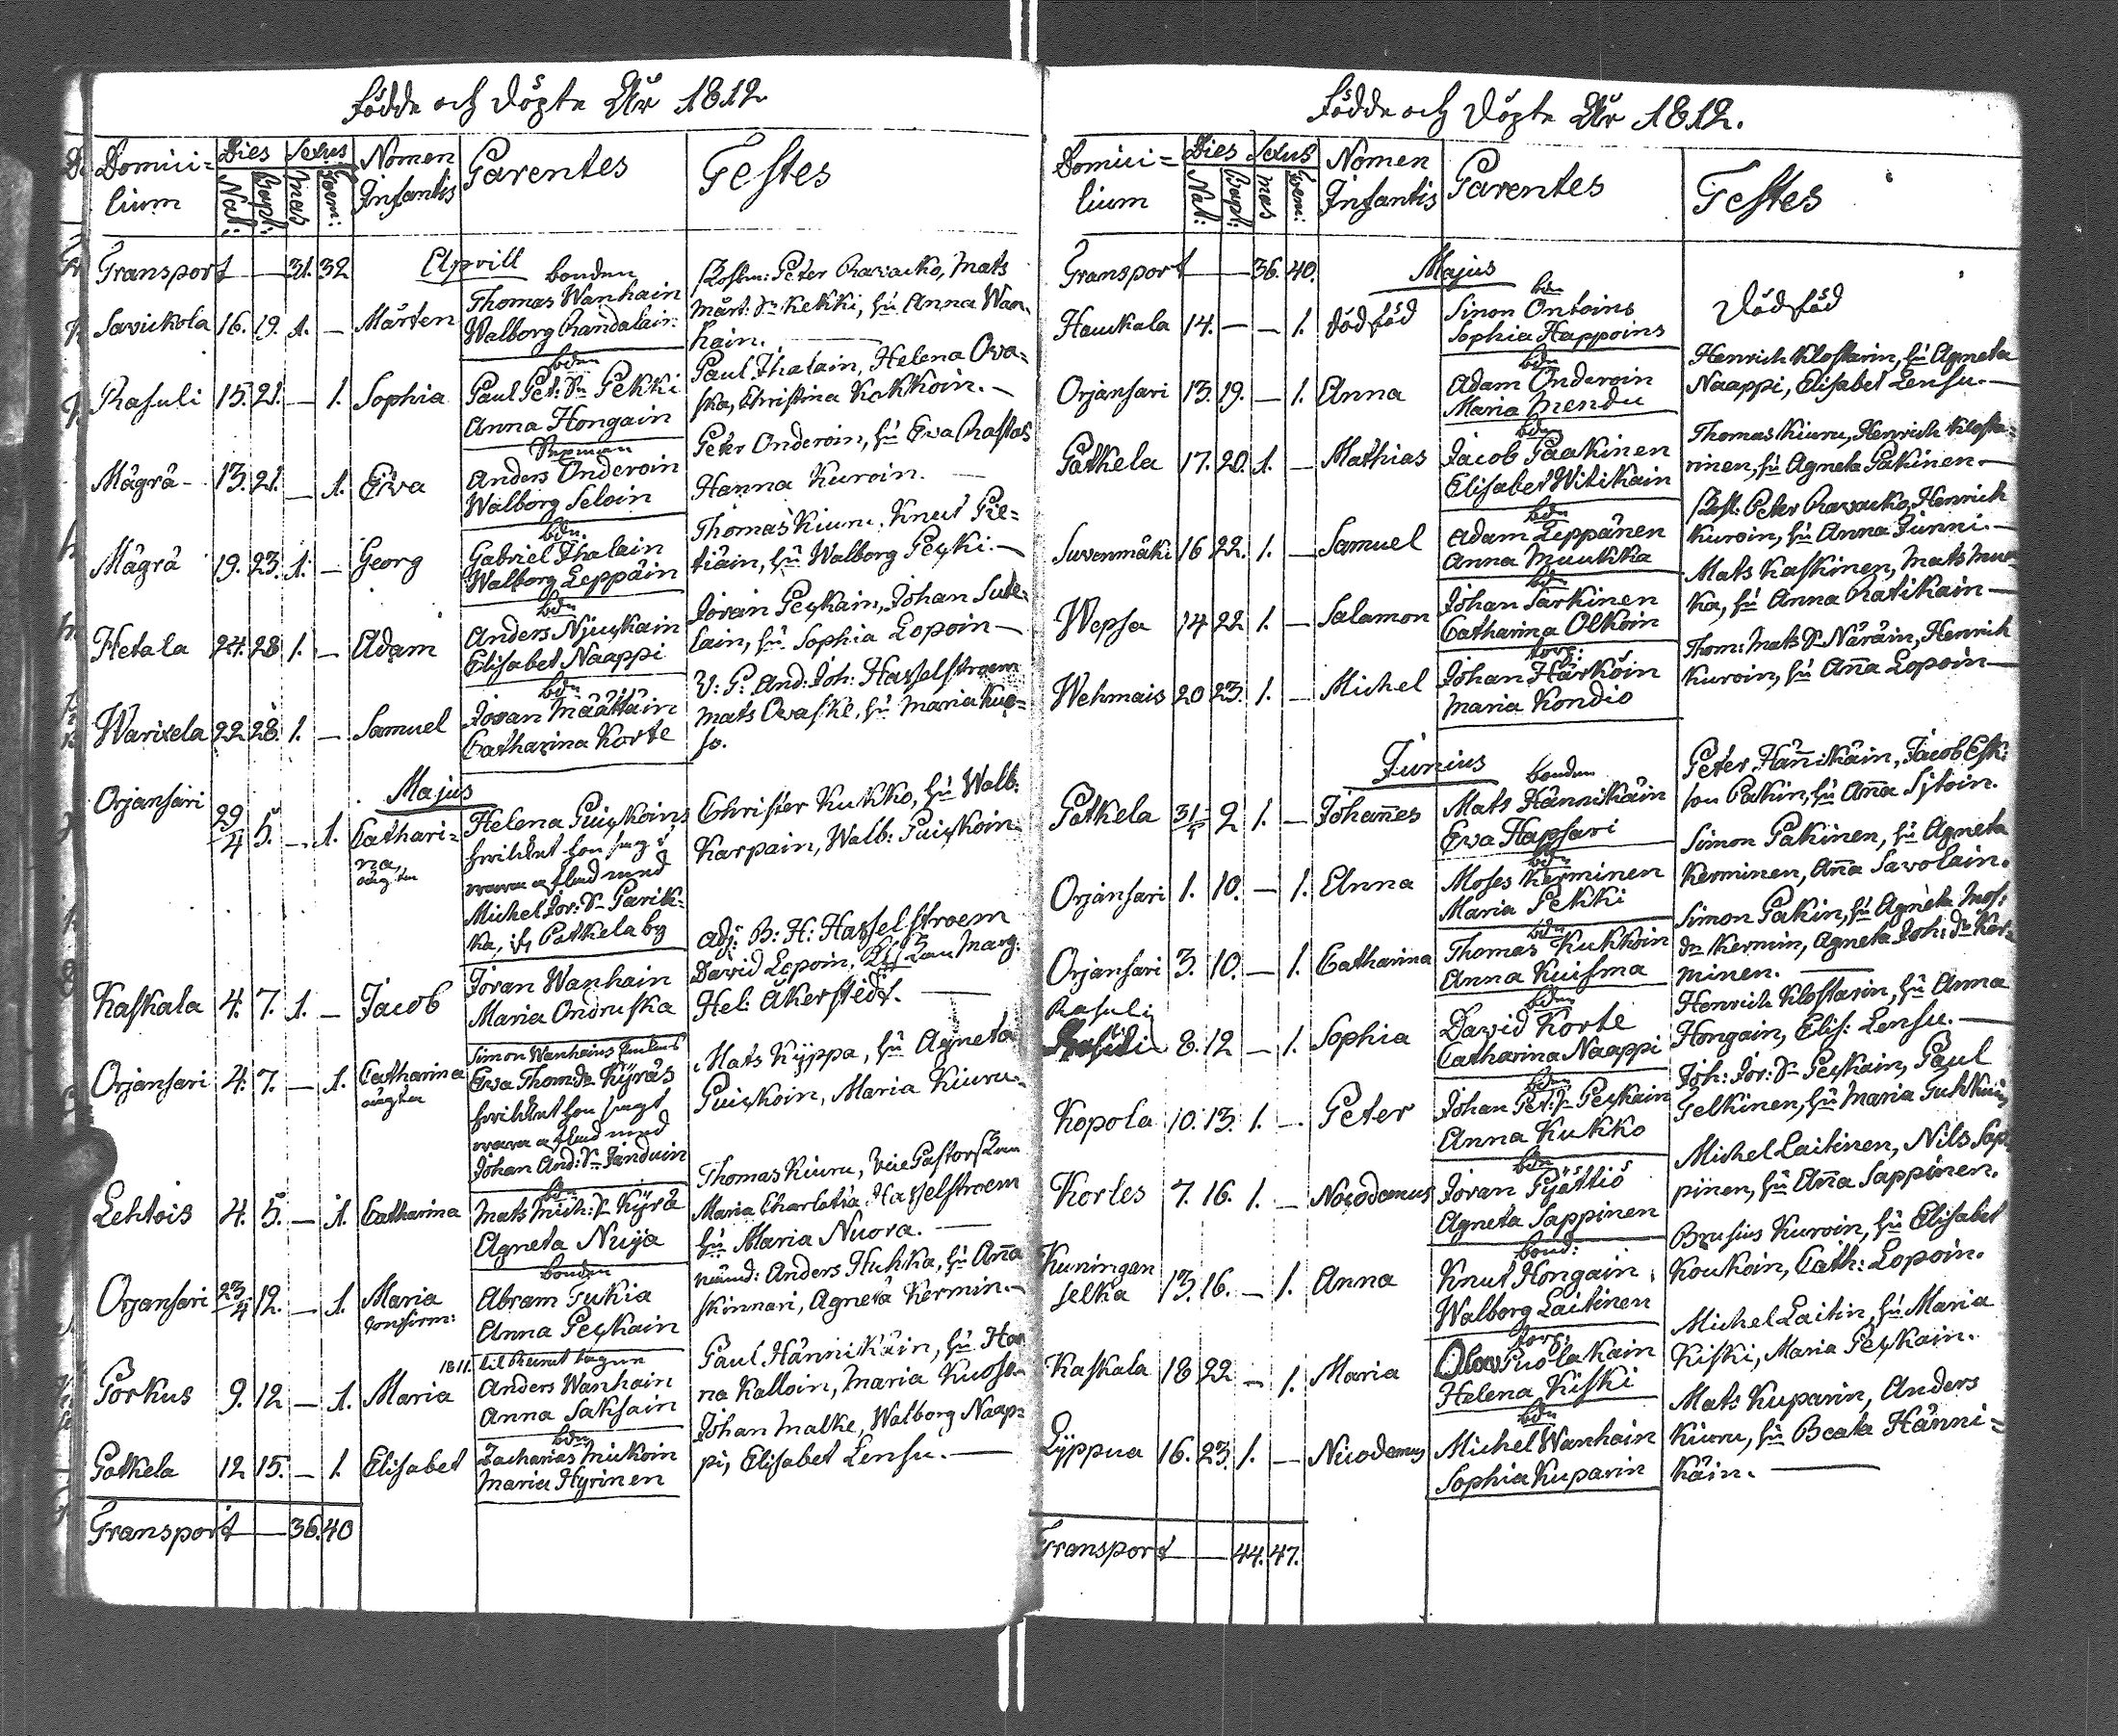 Födde och döpte År 1812
Domici= Dies Sexus Nomen Parentes Testes
lium Nat: Bapt: Mas Foem: Infantis
Transport — — 31. 32 Aprill
Savickola 16. 19. 1. — Mårten
bonden
Thomas Wanhain
Walborg Randalain
Peter Ravacko, Mats
Mårt: Sn Kekki, hu Anna Wan=
hain.
Rasuli 15. 21. — 1. Sophia
bdn
Paul Pet: Sn Pekki
Anna Hongain
Paul Ihalain, Helena Ova=
ska, Christina Kokkoin. —
Mägrä 13. 21. — 1. Eva
Anders Onderoin
Walborg Seloin
Peter Onderoin, hu Eva Rastas
Hanna Kuroin. —
Mägrä 19. 23. 1. — Georg
bdn
Gabriel Ihalain
Walborg Leppäin
Thomas Kiuru, Knut Pie=
tiäin, hu Walborg Peskki. —
Hetala 24. 28 1. — Adam
bdn
Anders Njuskain
Elisabet Naappi
Jöran Peskain, Johan Sute=
lain, hu Sophia Lopoin —
Warixela 22 28. 1. — Samuel
bdn
Jöran Määttäin
Catharina Korte
V: P: And: Joh: Hasselstroem
Mats Ovaske, hu Maria Kuo=
so.
Majus
Orjansari 29/4 5. — 1. Cathari=
na,
oägta
Helena Puiskoins,
hwilket hon sagt
wara aflad med
Michel Jör: Sn Parik=
ka, if Patkela by
Christer Kukko, hu Walb:
Karpain, Walb: Puiskoin.
Kaskala 4. 7. 1. — Jacob
Jöran Wanhain
Maria Ondruska
Adj: B: H: Hasselstroem
David Lopoin, Marg:
Hel: Åkerstedt. —
Orjansari 4. 7. — 1. Catharina
oägta
Simon Wanhains Enkas
Eva Thom: dr Kyräs
hwilket hon sagt
wara aflad med
Johan And: Sn Janduin
Mats Kyppa, hu Agneta
Puiskoin, Maria Kiuru.
Lehtois 4. 5. — 1. Catharina
bdn
Mats Mich: Sn Kyrä
Agneta Nuija
Thomas Kiuru, Vice Pastorskan
Maria Charlotta Hasselstroem
hu Maria Nuora. —
Orjansari 23/4 12. — 1. Maria
confirm:
bonden
Abram Tukia
Anna Peskain
nämd: Anders Hukka, hu Aña
Skinnari, Agneta Kermin. —
Porkus 9. 12 — 1. Maria
1811.
Anders Wanhain
Anna Saksain
Paul Hännikäin, hu Han
na Kalloin, Maria Kuoso
Patkela 12 15. — 1. Elisabet
bdn
Zacharias Mickoin
Maria Hyrinen
Johan Malke, Walborg Naap=
pi, Elisabet Lensu. —
Transport — — 36. 40
Födde och döpte År 1812.
Domici= Dies Sexus Nomen Parentes Testes
lium Nat: Bapt: Mas Foem: Infantis
Transport — — 36. 40. Majus
Hauckala 14. — — 1. dödföd
bdn
Simon Ontoins
Sophia Happoins
Dödföd
Orjansari 13. 19. — 1. Anna
bdn
Adam Onderoin
Maria Mendu
Henrich Klostarin, hu Agneta
Naappi, Elisabet Lensu. —
Patkela 17. 20. 1. — Mathias
bdn
Jacob Paakinen
Elisabet Witikain
Thomas Kiuru, Henrich Klosta=
rinen, hu Agneta Pakinen —
Suvenmäki 16 22. 1. — Samuel
bdn
Adam Leppänen
Anna Muukka
Peter Ravacko, Henrich
Kuroin, hu Anna Junni. —
Wepsa 14 22 1. — Salamon
bdn
Johan Särkinen
Catharina Olkoin
Mats Kaskinen, Mats
ka, hu Anna Ratikain —
Wehmais 20 23. 1. — Michel
torp:
Johan Härköin
Maria Kondio
Thom: Mats Sn Näräin, Henrich
Kuroin, hu Aña Lopoin —
Junius
Patkela 31/5 2 1. — Johañes
bonden
Mats Hännikäin
Eva Hapsari
Peter Hänikäin, Jacob Esk:
son Pakin, hu Aña Sjtoin.
Orjansari 1. 10. — 1. Anna
bdn
Moses Kerminen
Maria Pekki
Simon Pakinen, hu Agneta
Kerminen, Aña Savolain.
Orjansari 3. 10. — 1. Catharina
bdn
Thomas Kukkoin
Anna Kuisma
Simon Pakin, hu Agneta Mos:
dr Kermin, Agneta Joh: dr Ker=
minen. —
Rasuli
8. 12 — 1. Sophia
bdn
David Korte
Catharina Naappi
Henrich Klostarin, hu Anna
Hongain, Elis: Lensu. —
Kopola 10. 13. 1. — Peter
bdn
Johan Pet: Sn Peskain
Anna Kukko
Joh: Jör: Sn Peskain, Paul
Pelkinen, hu Maria
Korles 7. 16. 1. — Nocodemus
bdn
Jöran Pyättiö
Agneta Sappinen
Michel Laitinen, Nils Sap
pinen, hu Aña Sappinen.
Kuningan
selka 13. 16. — 1. Anna
bond:
Knut Hongain
Walborg Laitinen
Brusius Kuroin, hu Elisabet
Koukoin, Cath: Lopoin.
Kaskala 18 22 — 1. Maria
torp:
Olov Puolakain
Helena Kiski
Michel Laitin, hu Maria
Kiski, Maria Peskain.
Lyppua 16. 23. 1. — Nicodemus
bdn
Michel Wanhain
Sophia Kuparin
Mats Kuparin, Anders
Kiuru, hu Beata Hänni=
käin. —
Transport — — 44. 47.